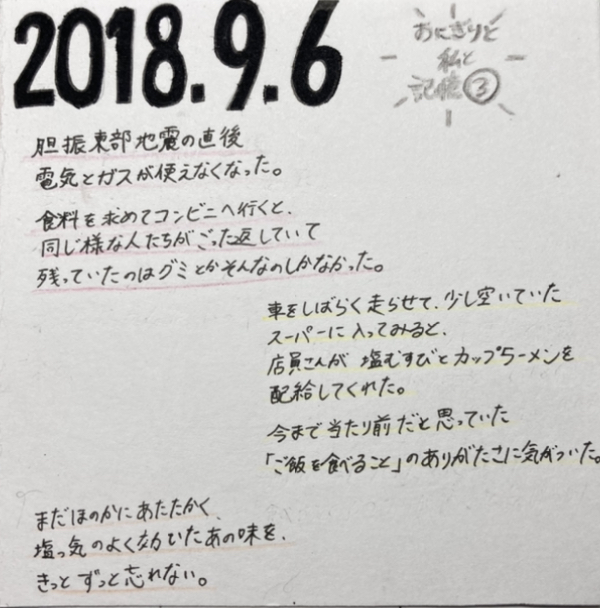 2018.9.6
おにぎりと
私と
記憶③
胆振東部地震の直後
電気とガスが使えなくなった。
食料を求めてコンビニへ行くと、
同じ様な人たちがごった返していて
残っていたのはグミとかそんなのしかなかった。
車をしばらく走らせて、少し空いていた
スーパーに入ってみると、
店員さんが塩むすびとカップラーメンを
配給してくれた。
今まで当たり前だと思っていた
「ご飯を食べること」のありがたさに気がついた。
まだほのかにあたたかく、
塩っ気のよく効いたあの味を、
きっとずっと忘れない。